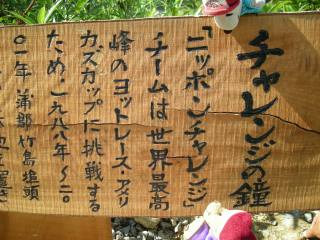 チャレンジの鐘
「ニッポンチャレンジ」
チームは世界最高
峰のヨットレース・アメリ
カズカップに挑戦する
ため・一九八八年〜二〇
〇一年 蒲郡竹島埠頭